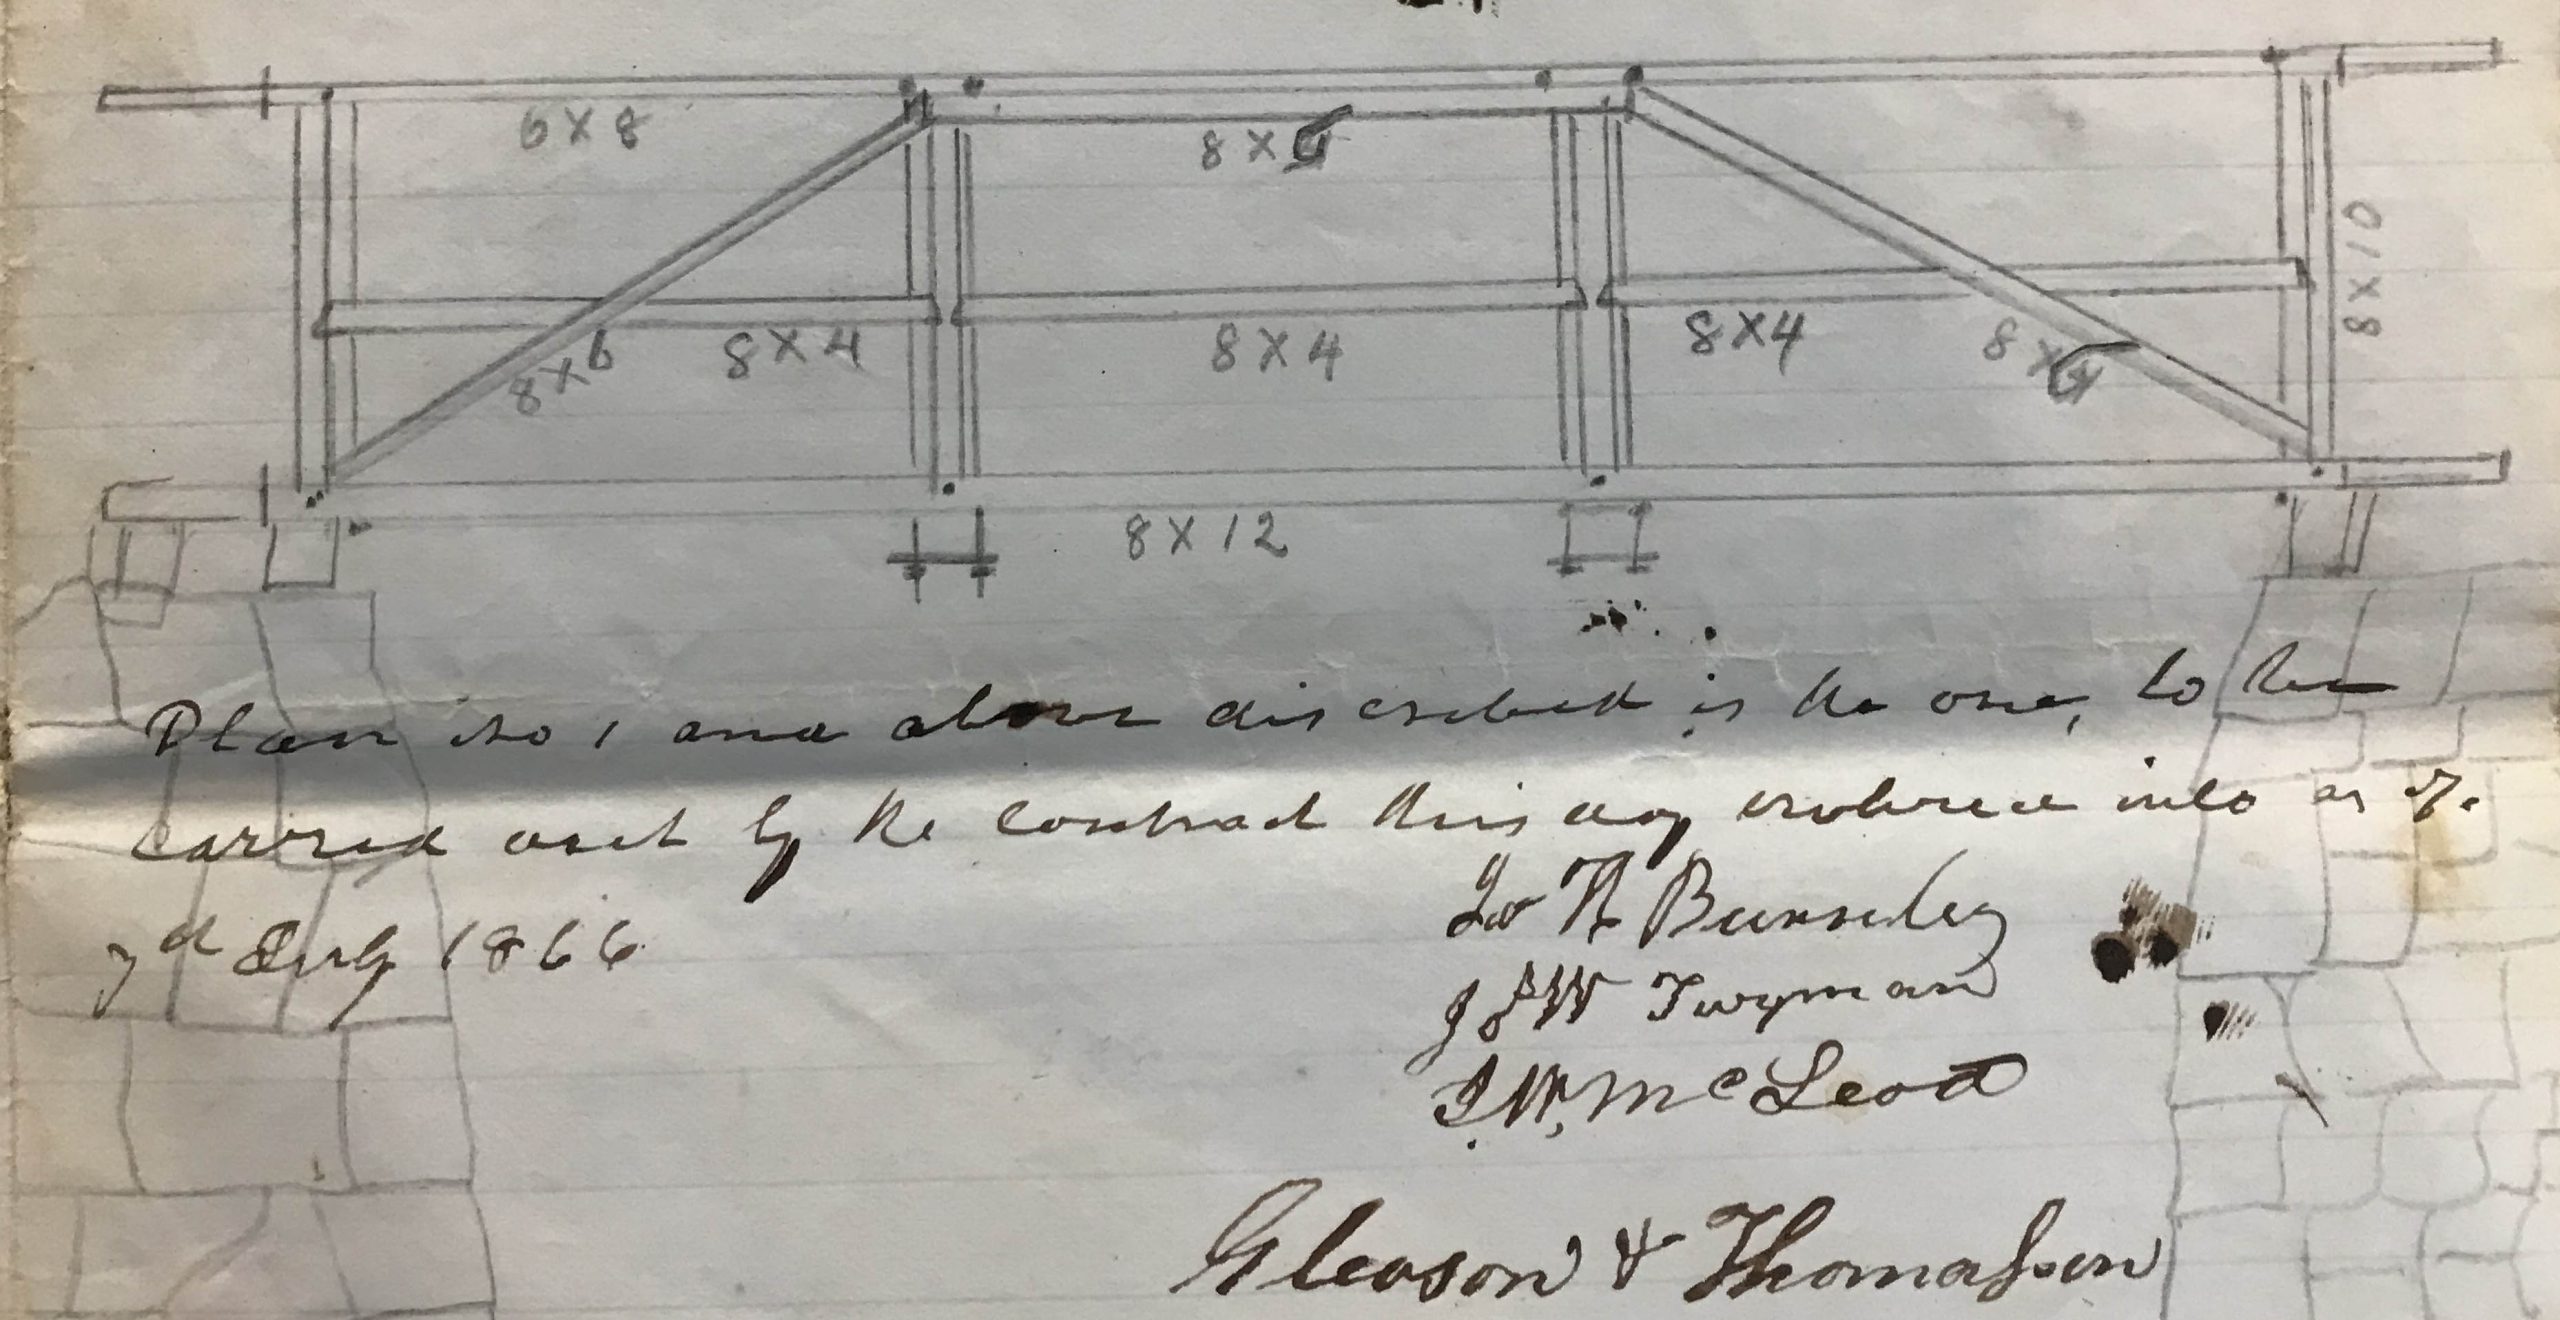 6 X 8
8 X 6
8 X 10
8 X 6
8 X 4
8 X 4
8 X 4
8 X 6
8 X 12
Plan No 1 and above discribed is the one, to be
carried out by the contract this day entered into
7d July 1866
R Burnley
J W Twyman
J. W. McLeod
Gleason & Thomasson